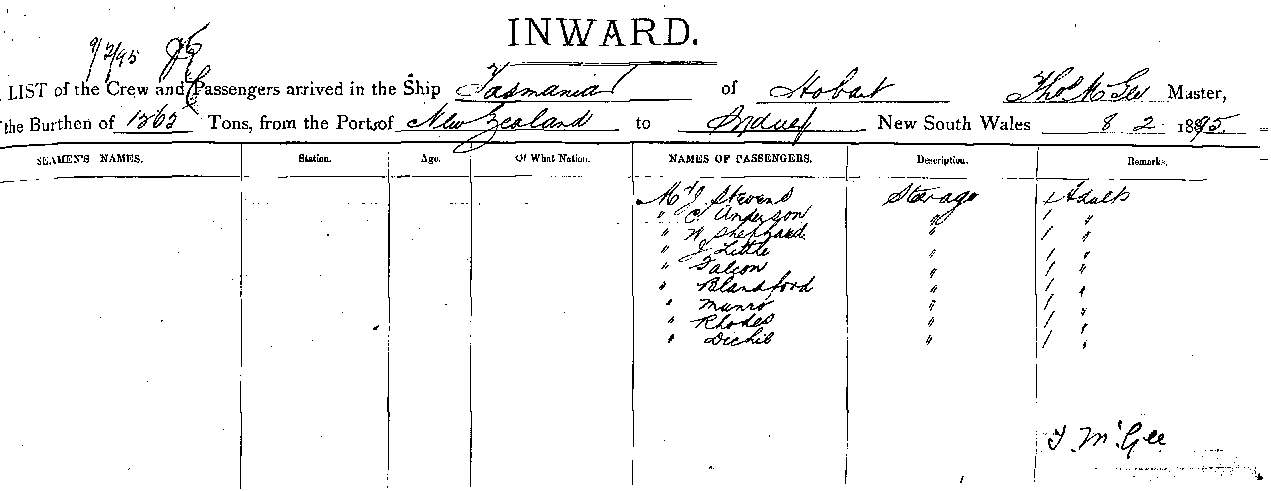 INWARD.
9/2/95
LIST of the Crew and Passengers arrived in the Ship Tasmania of Hobart Thos McGee Master,
the Burthen of 1263 Tons, from the Ports of New Zealand to Sydney New South Wales 8 2 1895.
SEAMEN'S NAMES. Station. Age. Of What Nation. NAMES OF PASSENGERS. Description. Remarks.
Mr J Stevens Steerage 1 Adults
" C. Anderson " 1 "
" W Sheppard " 1 "
" J Little " 1 "
" Falcon " 1 "
" Blandford " 1 "
" Munro " 1 "
" Rhodes " 1 "
" " 1 "
T. McGee